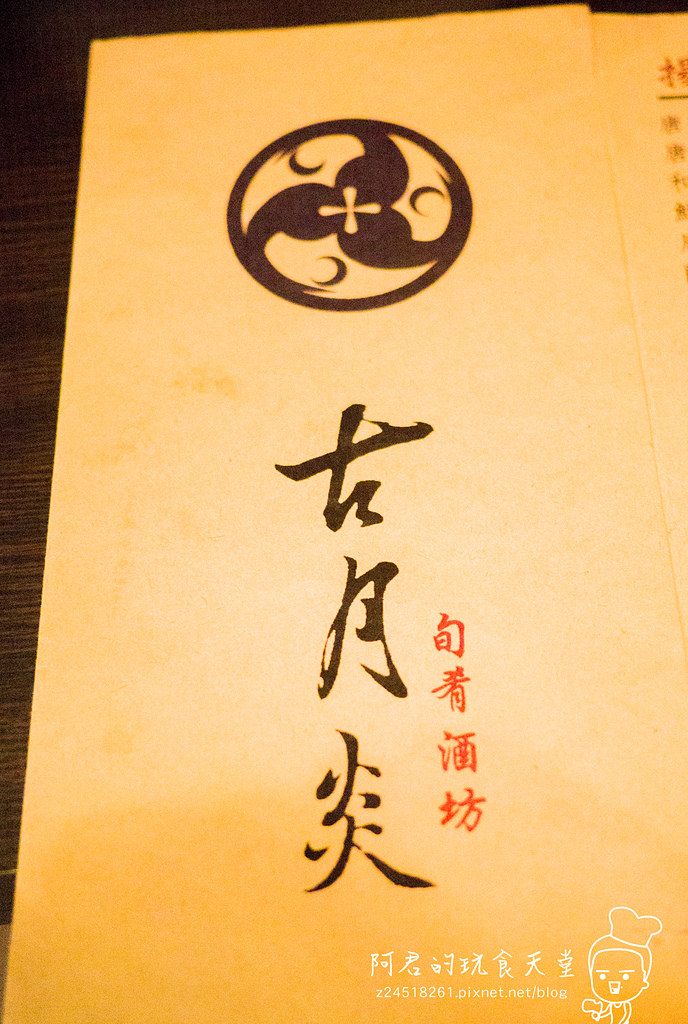 古月炎
旬肴酒坊
揚
唐
唐
和
阿君的玩食天堂
z24518261.pixnet.net/blog